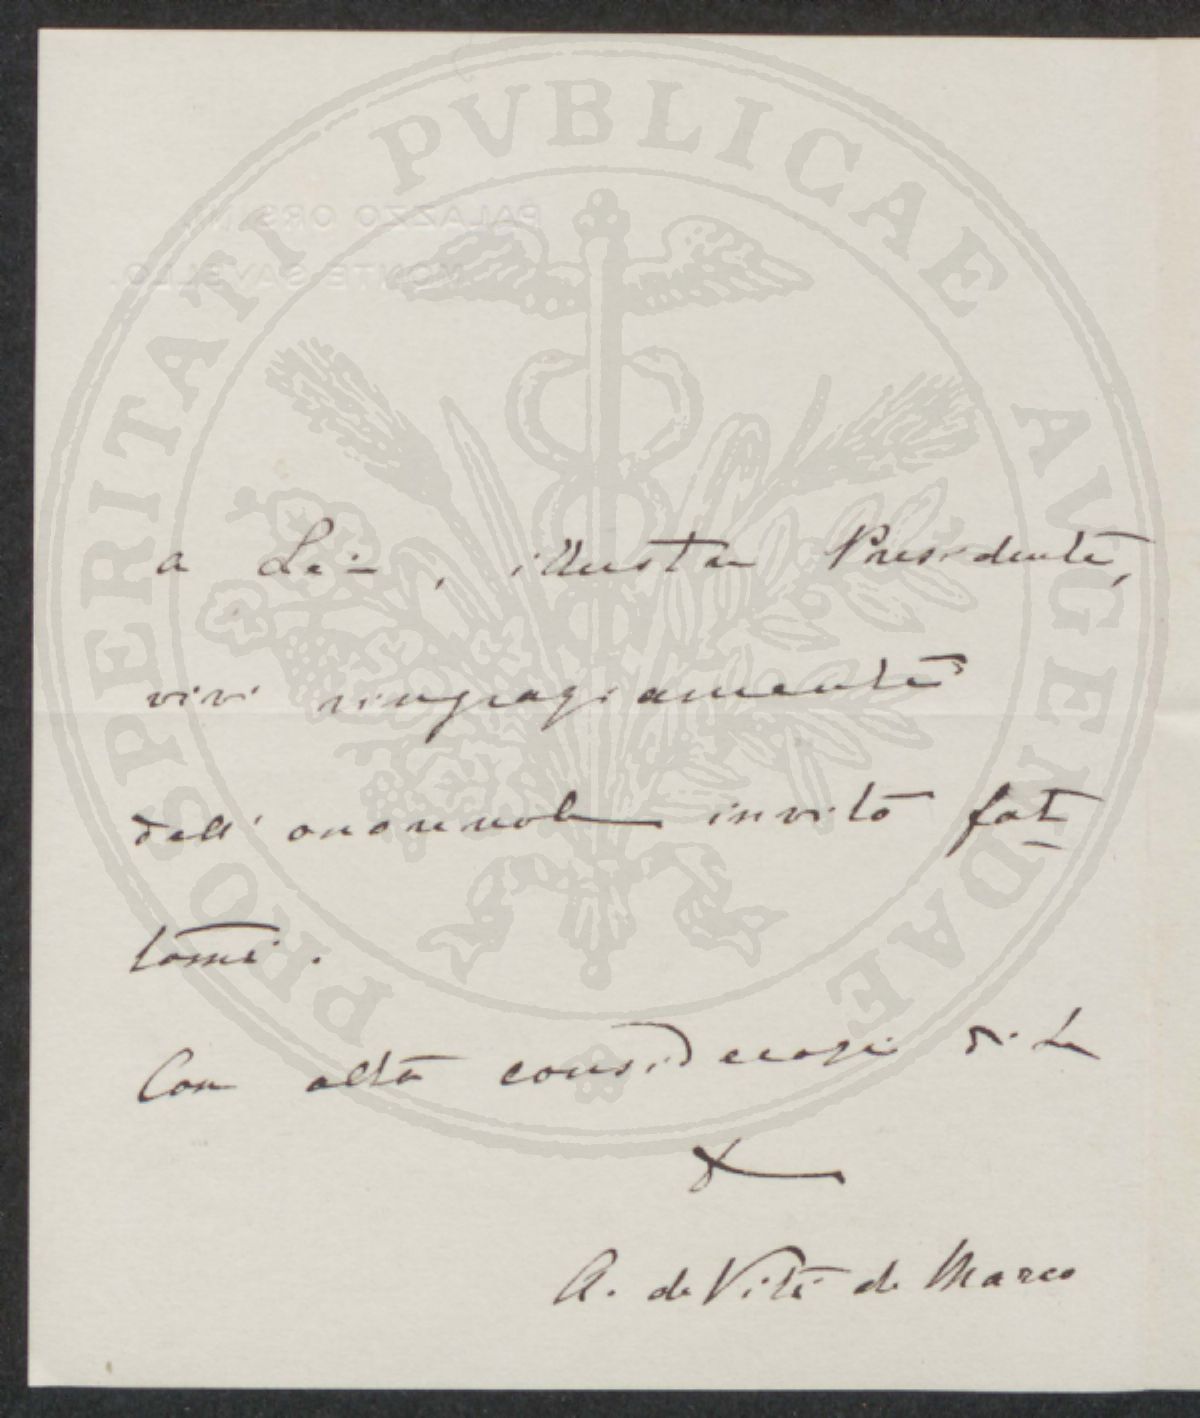 PROSPERITATI PVBLICAE AVGENDAE
PALAZZO ORSINI.
MONTE SAVELLO.
a Lei, illustre Presidente,
vivi ringraziamenti
dell'onorevole invito fat
tomi.
Con alta considerazi di Lei
A. de Viti de Marco